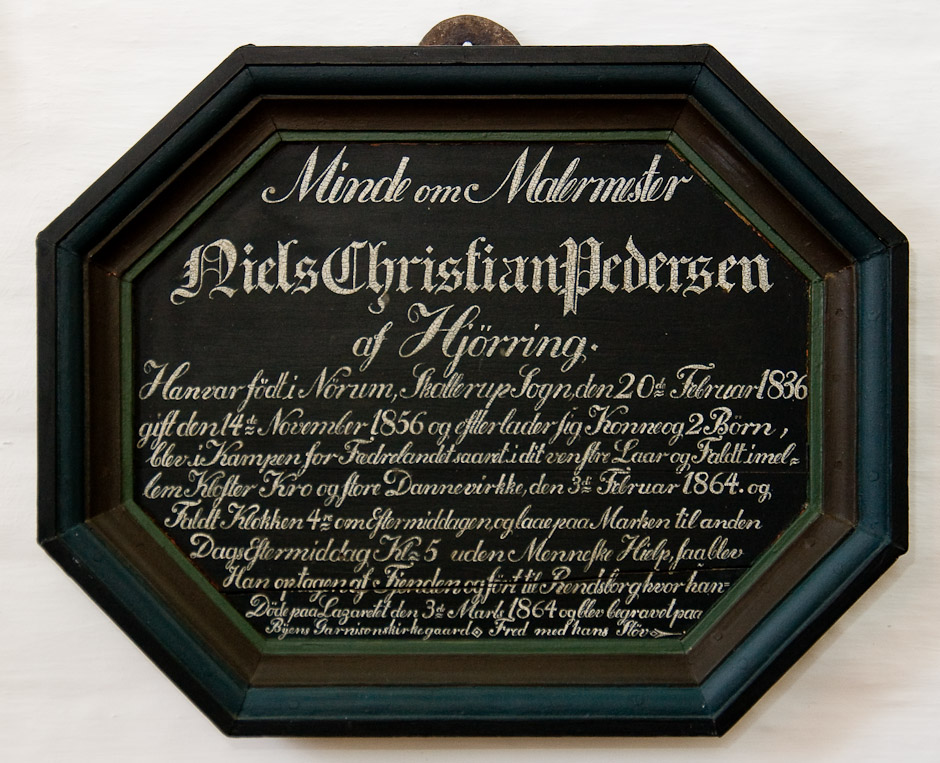 Minde om Malermester
Niels Christian Pedersen
af Hjörring.
Han var födt i Nörum, Skallerup Sogn, den 20de Februar 1836
gift den 14de November 1856 og efterlader sig Konne og 2 Börn,
blev i Kampen for Fedrelandet saaret i dit venstre Laar og Faldt imel=
lem Kloster Kro og store Dannevirkke, den 3de Februar 1864. og
Faldt Klokken 4re om Eftermiddagen og laae paa Marken til anden
Dags Eftermiddag Kl= 5 uden Menneske Hielp, saa blev
Han optagen af Fienden og fört til Rendsborg hvor han=
Döde paa Lazaretet den 3de Marts 1864 og blev begravet paa
Byens Garnisonskirkegaard Fred med hans Stöv